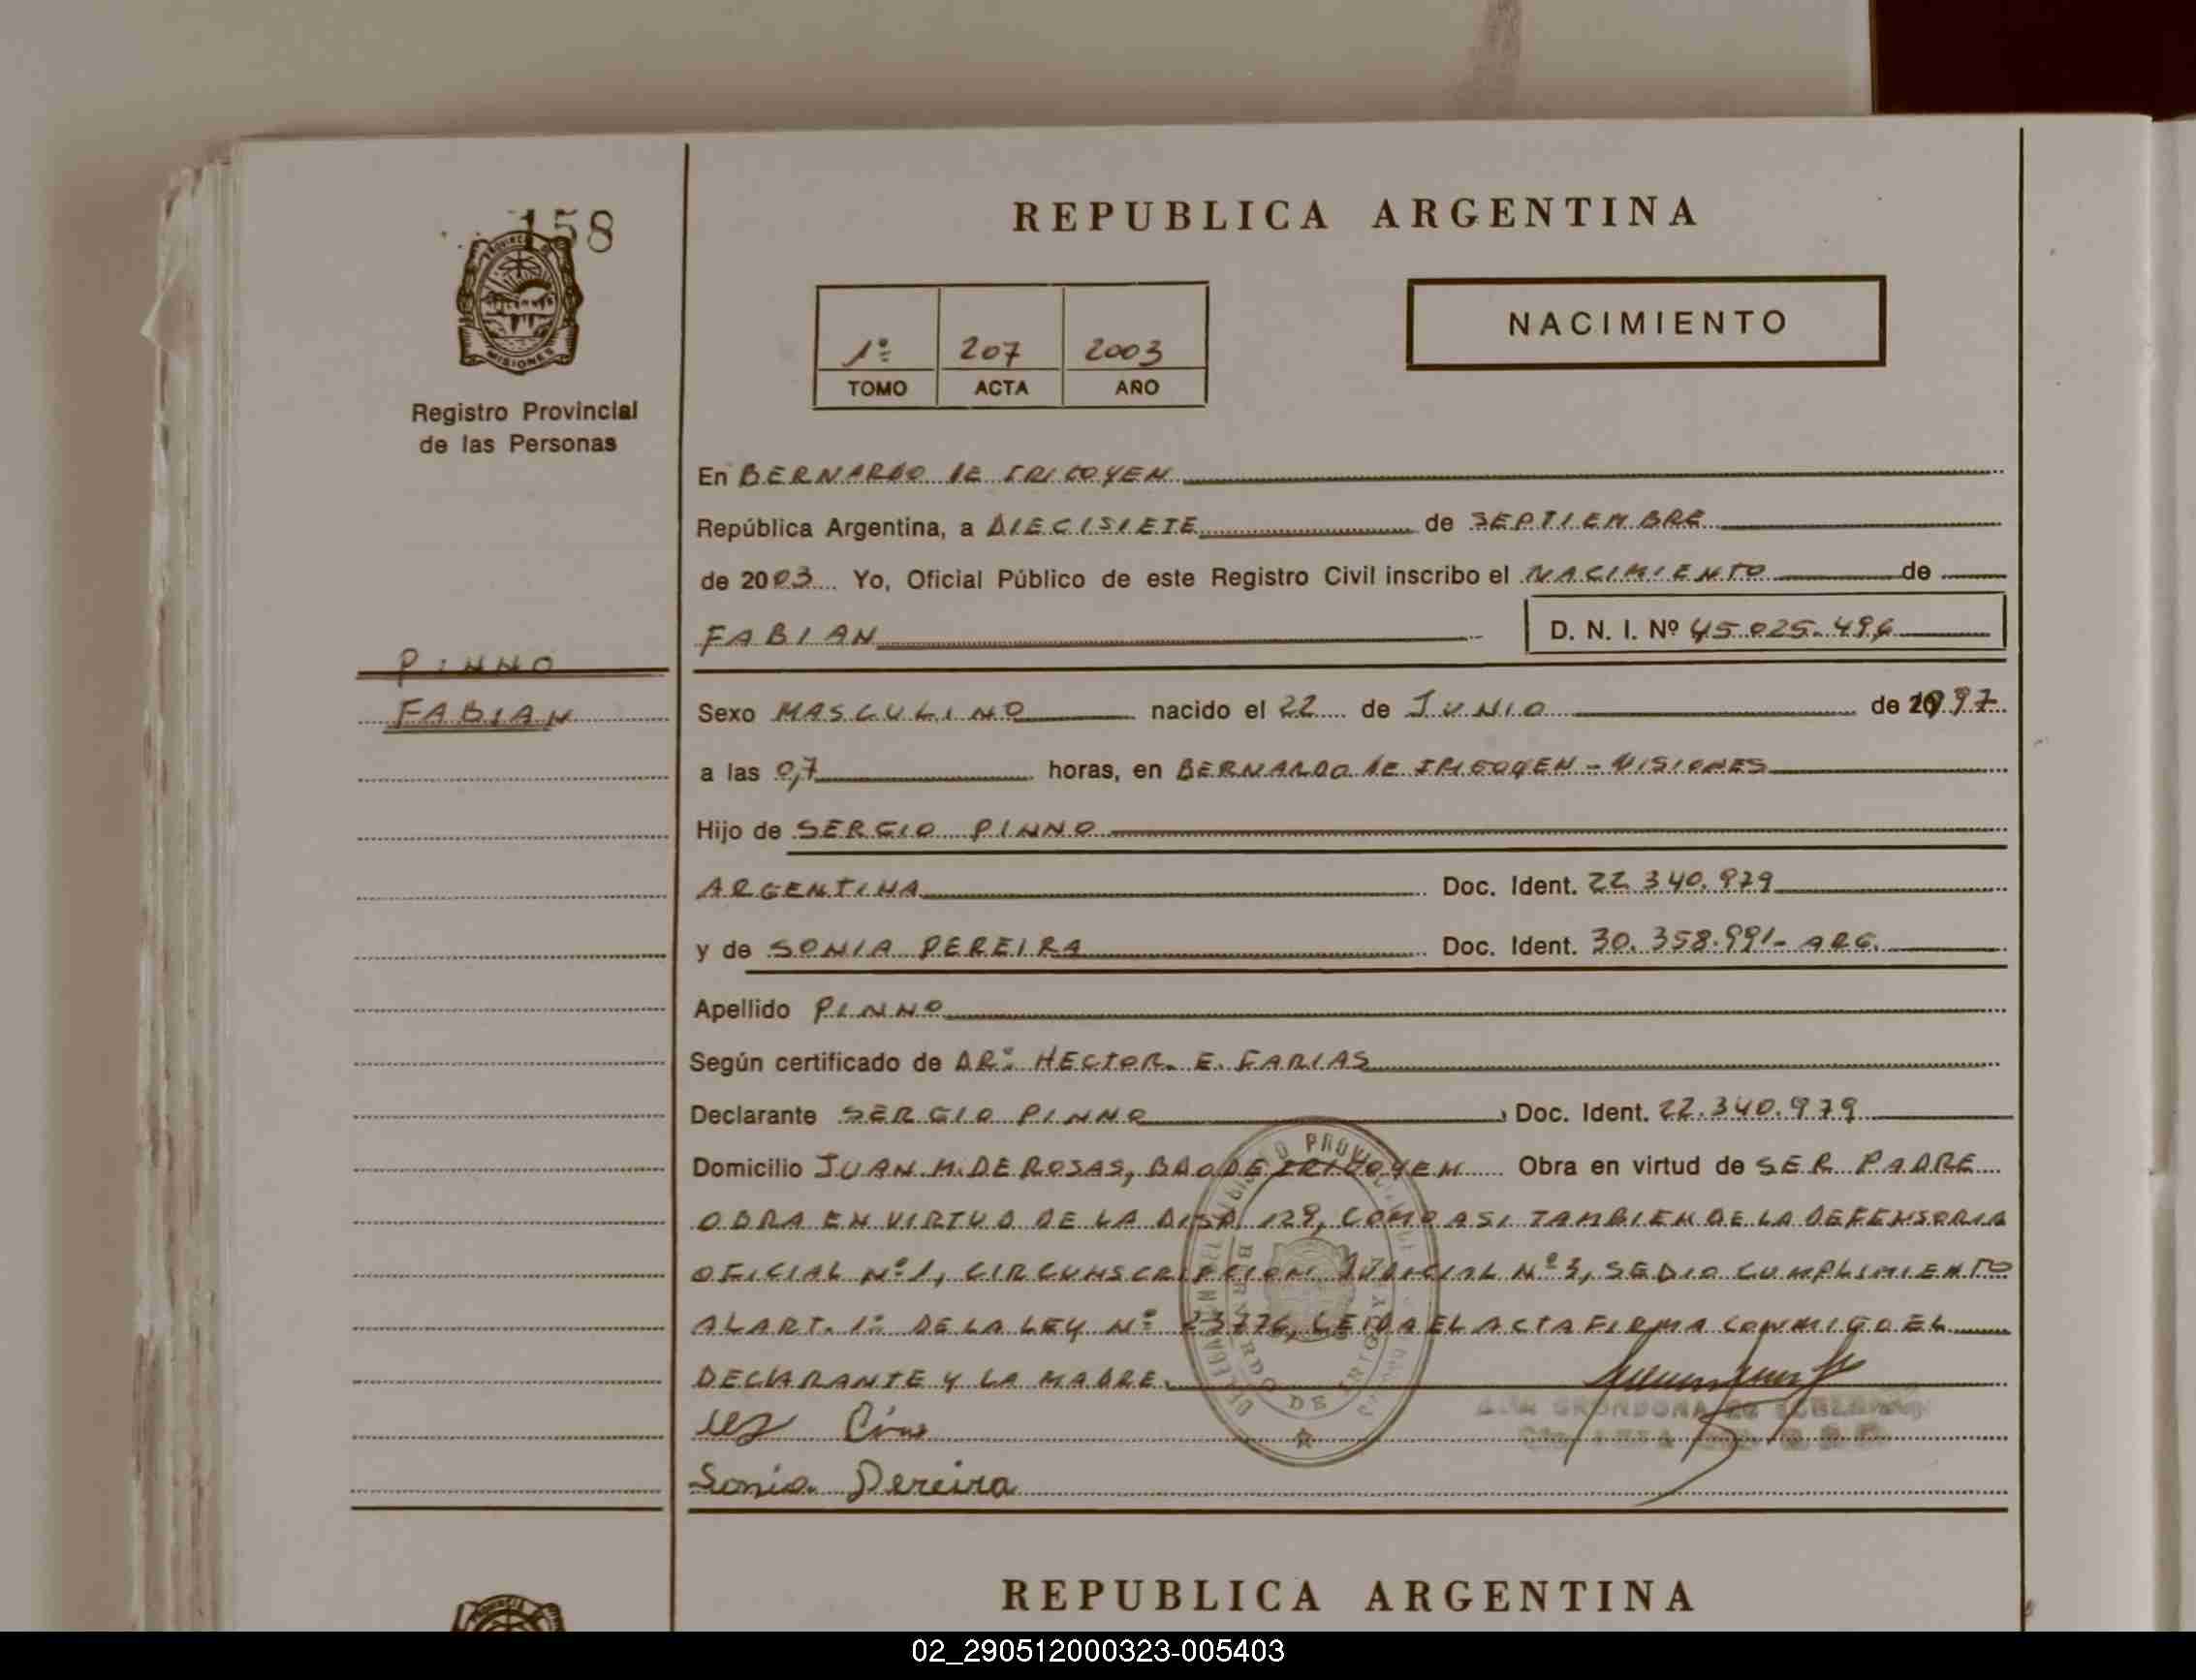 158
PROVINCIA DE
MISIONES
Registro Provincial
de las Personas
PINNO
FABIAN
REPUBLICA ARGENTINA
1º 207 2003
TOMO ACTA AÑO
NACIMIENTO
En BERNARDO DE IRIGOYEN
República Argentina, a DIECISIETE de SEPTIEMBRE
de 2003 Yo, Oficial Público de este Registro Civil inscribo el NACIMIENTO de
FABIAN D. N. I. Nº 45.025.496
Sexo MASCULINO nacido el 22 de JUNIO de 1997
a las 07 horas, en BERNARDO DE IRIGOYEN - MISIONES
Hijo de SERGIO PINNO
ARGENTINA Doc. Ident. 22.340.979
y de SONIA PEREIRA Doc. Ident. 30.358.991- ARG.
Apellido PINNO
Según certificado de DRº HECTOR. E. FARIAS
Declarante SERGIO PINNO, Doc. Ident. 22.340.979
Domicilio JUAN M. DE ROSAS, BDO DE IRIGOYEN Obra en virtud de SER PADRE
OBRA EN VIRTUD DE LA DISP. 129, COMO ASI TAMBIEN DE LA DEFENSORIA
OFICIAL Nº 1, CIRCUNSCRIPCION JUDICIAL Nº 3, SE DIO CUMPLIMIENTO
AL ART. 1º DE LA LEY Nº 23776, LEIDA EL ACTA FIRMA CONMIGO EL
DECLARANTE Y LA MADRE.
BERNARDO DE IRIGOYEN
Sonia Pereira
REPUBLICA ARGENTINA
02_290512000323-005403